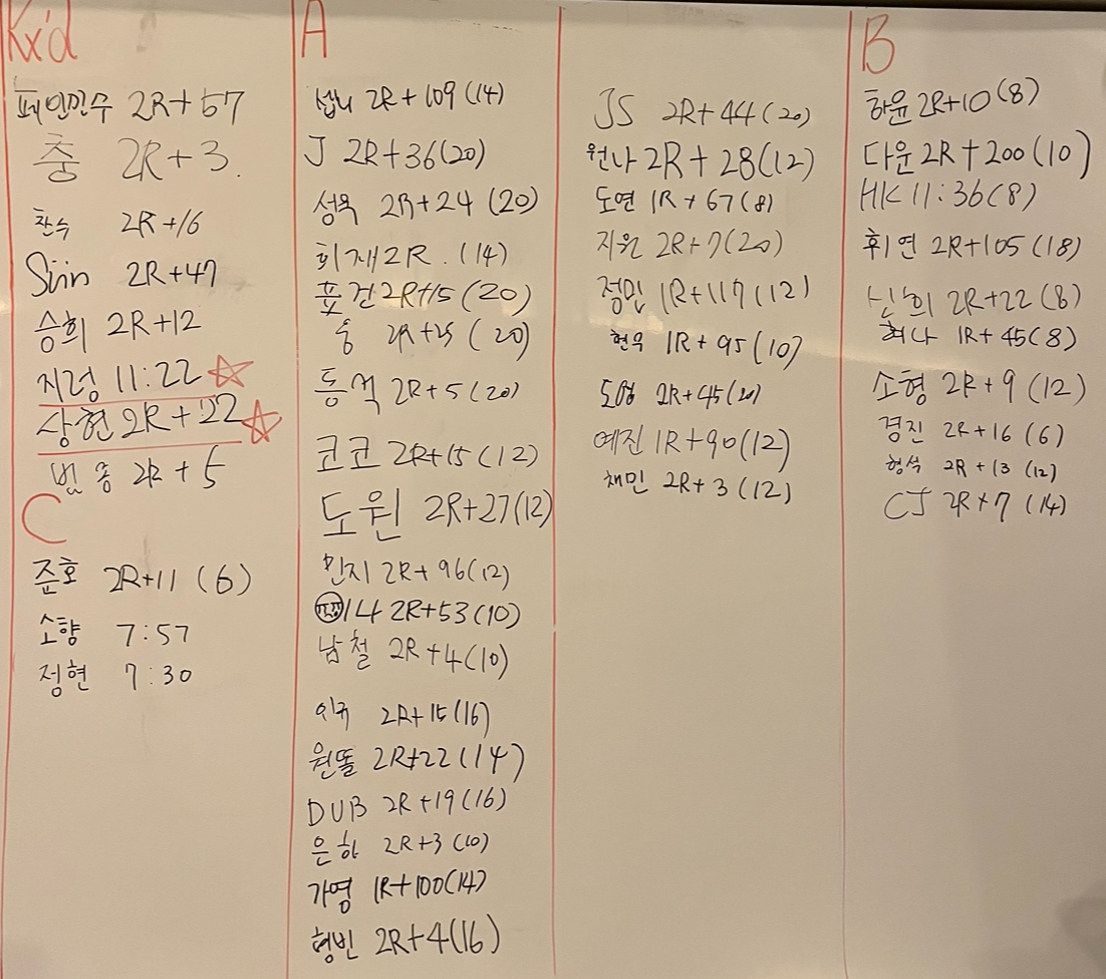 Rx'd
페인민수 2R+57
충 2R+3.
찬수 2R+16
Siin 2R+47
승희 2R+12
지렁 11:22
상현 2R+22
범종 2R+5
C
준호 2R+11 (6)
소향 7:57
정현 7:30
A
섭니 2R+109(14)
J 2R+36(20)
성욱 2R+24 (20)
희재 2R. (14)
표건 2R+15(20)
2R+25 (20)
동석 2R+5(20)
코코 2R+15(12)
도원 2R+27(12)
민지 2R+96(12)
2R+53(10)
남철 2R+4(10)
2R+15(16)
원똘 2R+22(14)
DUB 2R+19(16)
은하 2R+3(10)
가영 1R+100(14)
형빈 2R+4(16)
JS 2R+44(20)
원나 2R+28(12)
도연 1R+67(8)
지원 2R+7(20)
정민 1R+117(12)
현우 1R+95(10)
도영 2R+45(20)
예진 1R+90(12)
채민 2R+3(12)
B
하윤 2R+10(8)
다운 2R+200(10)
HK 11:36(8)
휘연 2R+105(18)
2R+22(8)
희나 1R+45(8)
소형 2R+9(12)
경진 2R+16(6)
형석 2R+13(12)
CJ 2R+7(14)